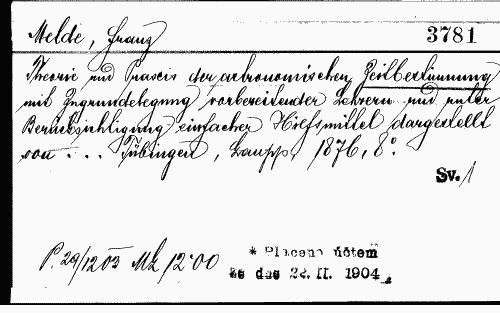 Melde, Franz
3781
Theorie und Praxis der astronomischen Zeitbestimmung
mit Zugrundelegung vorbereitender Lehren und unter
Berücksichtigung einfacher Hilfsmittel dargestellt
von ... Tübingen, Laupp, 1876, 8°.
Sv. 1
P. 29/12 03 Mk 12·00
* Placeno účtem
ze dne 22. II. 1904